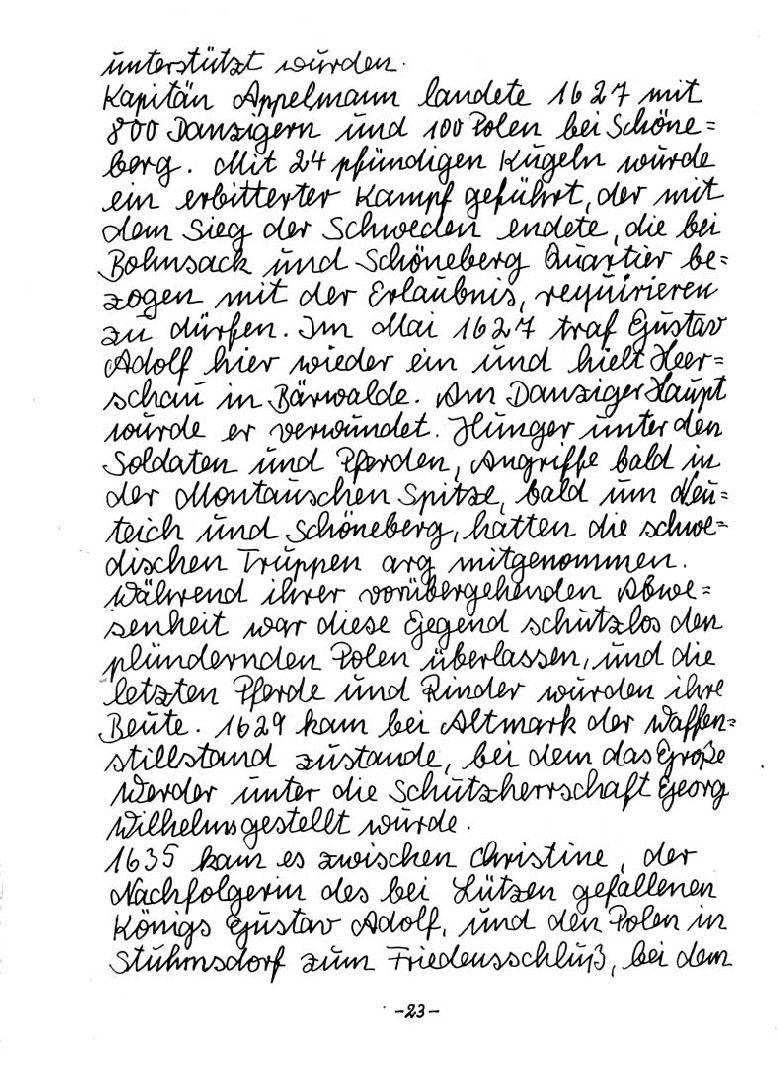 unterstützt wurden.
Kapitän Appelmann landete 1627 mit
800 Danzigern und 100 Polen bei Schöne=
berg. Mit 24 pfündigen Kugeln wurde
ein erbitterter Kampf geführt, der mit
dem Sieg der Schweden endete, die bei
Bohnsack und Schöneberg Quartier be=
zogen mit der Erlaubnis, requirieren
zu dürfen. Im Mai 1627 traf Gustav
Adolf hier wieder ein und hielt Heer=
schau in Bärwalde. Am Danziger Haupt
wurde er verwundet. Hunger unter den
Soldaten und Pferden, Angriffe bald in
der Montauschen Spitze, bald um Neu=
teich und Schöneberg, hatten die schwe=
dischen Truppen arg mitgenommen.
Während ihrer vorübergehenden Abwe=
senheit war diese Gegend schutzlos den
plündernden Polen überlassen, und die
letzten Pferde und Rinder wurden ihre
Beute. 1629 kam bei Altmark der Waffen=
stillstand zustande, bei dem das Große
Werder unter die Schutzherrschaft Georg
Wilhelms gestellt wurde.
1635 kam es zwischen Christine, der
Nachfolgerin des bei Lützen gefallenen
Königs Gustav Adolf, und den Polen in
Stuhmsdorf zum Friedensschluß, bei dem
-23-